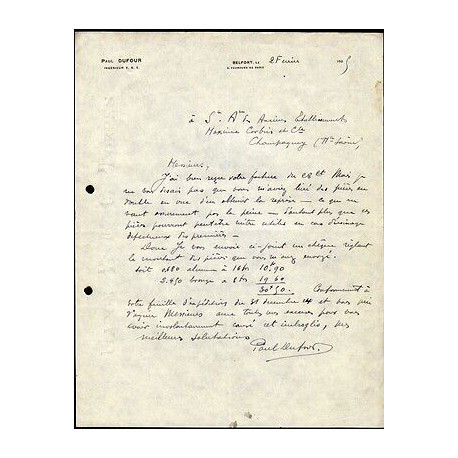 PAUL DUFOUR
INGÉNIEUR E.
BELFORT, LE 2 Février 19
FAUBOURG DE
à Sté Ame des Anciens Etablissements
Maxime Corbin et Cie
Champagney (Hte Saône)
Messieurs,
J'ai bien reçu votre facture du Mais je
ne vous disais pas que vous m'aviez livré des pièces en
double en vue d'en obtenir la reprise — ce qui ne
vaut assurément pas la peine — d'autant plus que ces
pièces pourront peut être m'être utiles en cas d'usinage
défectueux des premières —
Donc Je vous envoie ci-joint un chèque réglant
le montant des pièces que vous m'avez envoyé.
soit 0.680 alumin à 16 10.90
2.450 bronze à 8 19.60
30.50. Conformément à
votre feuille d'expédition du 31 décembre et vous prie
d'agréer Messieurs avec toutes mes excuses pour vous
avoir involontairement causé cet imbroglio, mes
meilleures salutations
Paul Dufour.